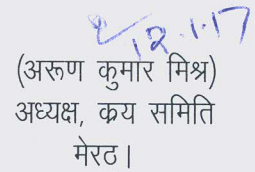 12.1.17
(अरूण कुमार मिश्र)
अध्यक्ष, क्रय समिति
मेरठ।